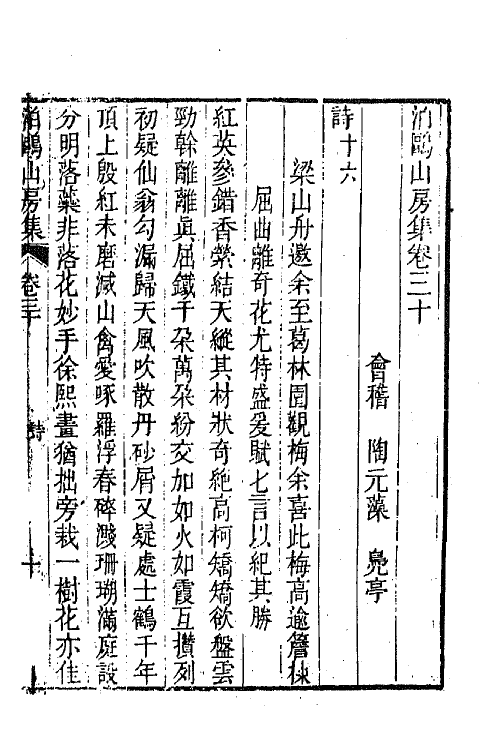 泊鷗山房集卷三十
會稽 陶元藻 鳧亭
詩十六
梁山舟邀余至葛林園觀梅余喜此梅高逾簷棟
屈曲離奇花尤特盛爰賦七言以紀其勝
紅英參錯香縈結天縱其材狀奇絶高柯矯矯欲盤雲
勁幹離離眞屈鐵千朶萬朶紛交加如火如霞互攢列
初疑仙翁勾漏歸天風吹散丹砂屑又疑處士鶴千年
頂上殷紅未磨滅山禽愛啄羅浮春碎潑珊瑚滿庭設
分明落蘂非落花妙手徐熙畫猶拙旁栽一樹花亦佳
泊鷗山房集 卷三十 詩 十